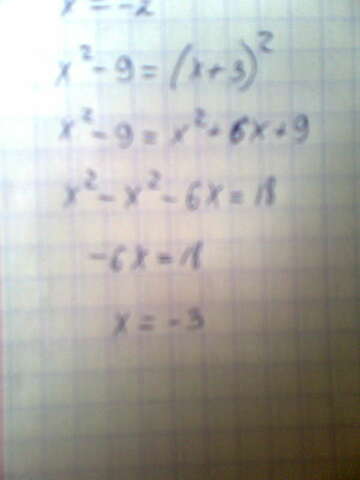 x = -2
x² - 9 = (x + 3)²
x² - 9 = x² + 6x + 9
x² - x² - 6x = 18
-6x = 18
x = -3